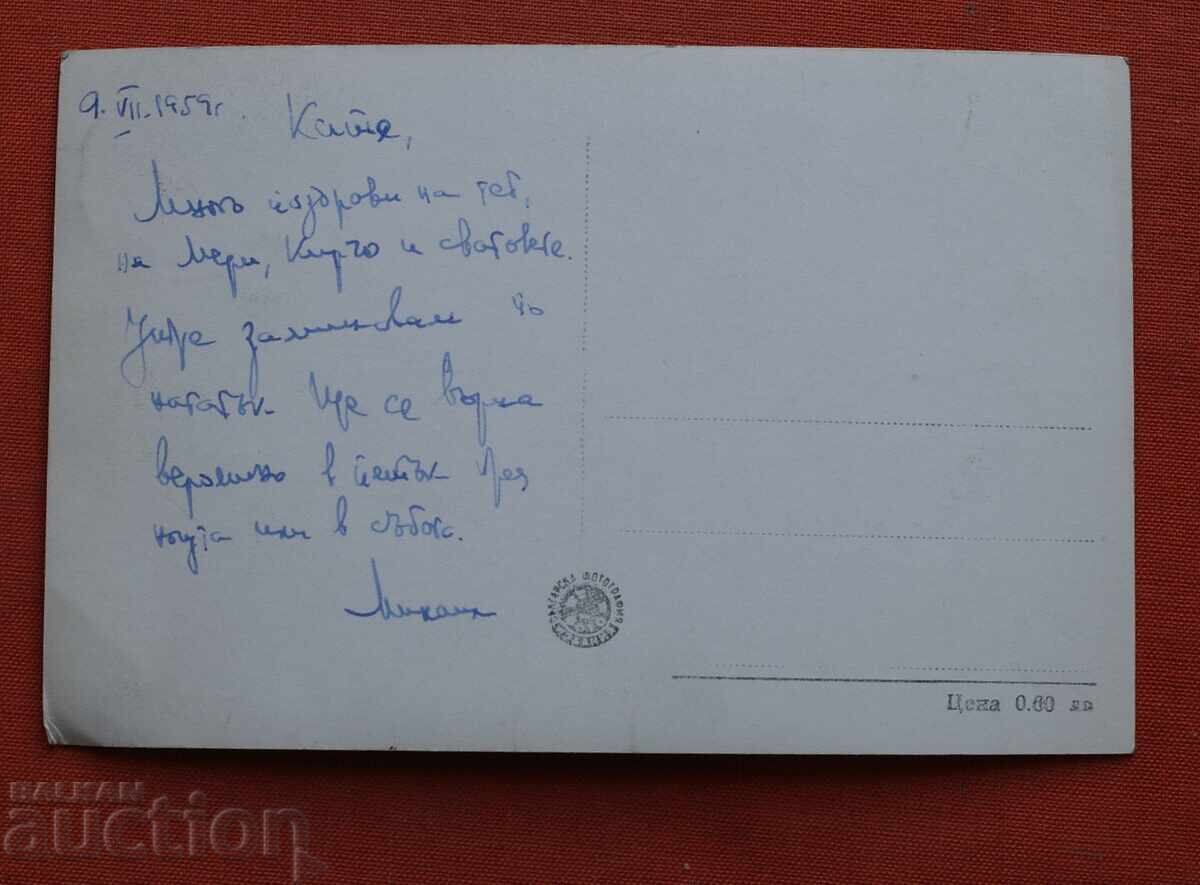 9. VII. 1959г.
Катя,
Много поздрави на теб,
на Мери, Кирчо и сватовете.
Утре заминавам по
нататък. Ще се върна
вероятно в петък през
нощта или в събота.
Михаил
БЪЛГАРСКА ФОТОГРАФИЯ
Цена 0.60 лв
BALKAN
auction